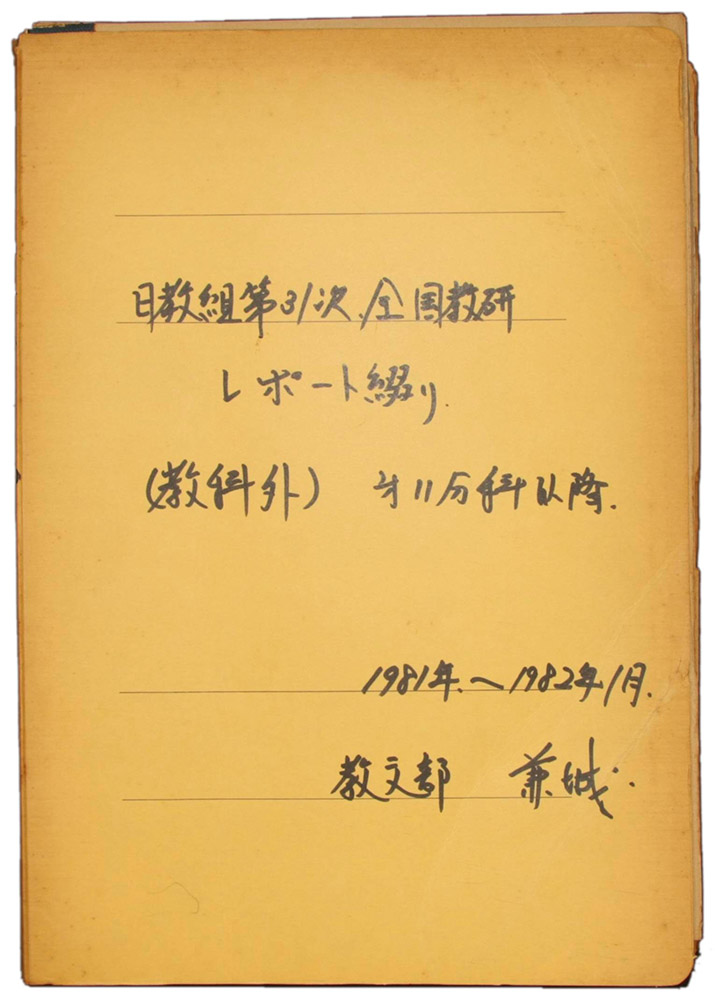 日教組第31次全国教研
レポート綴り.
(教科外) 才11分科以降.
1981年.〜1982年1月.
教文部 兼城.